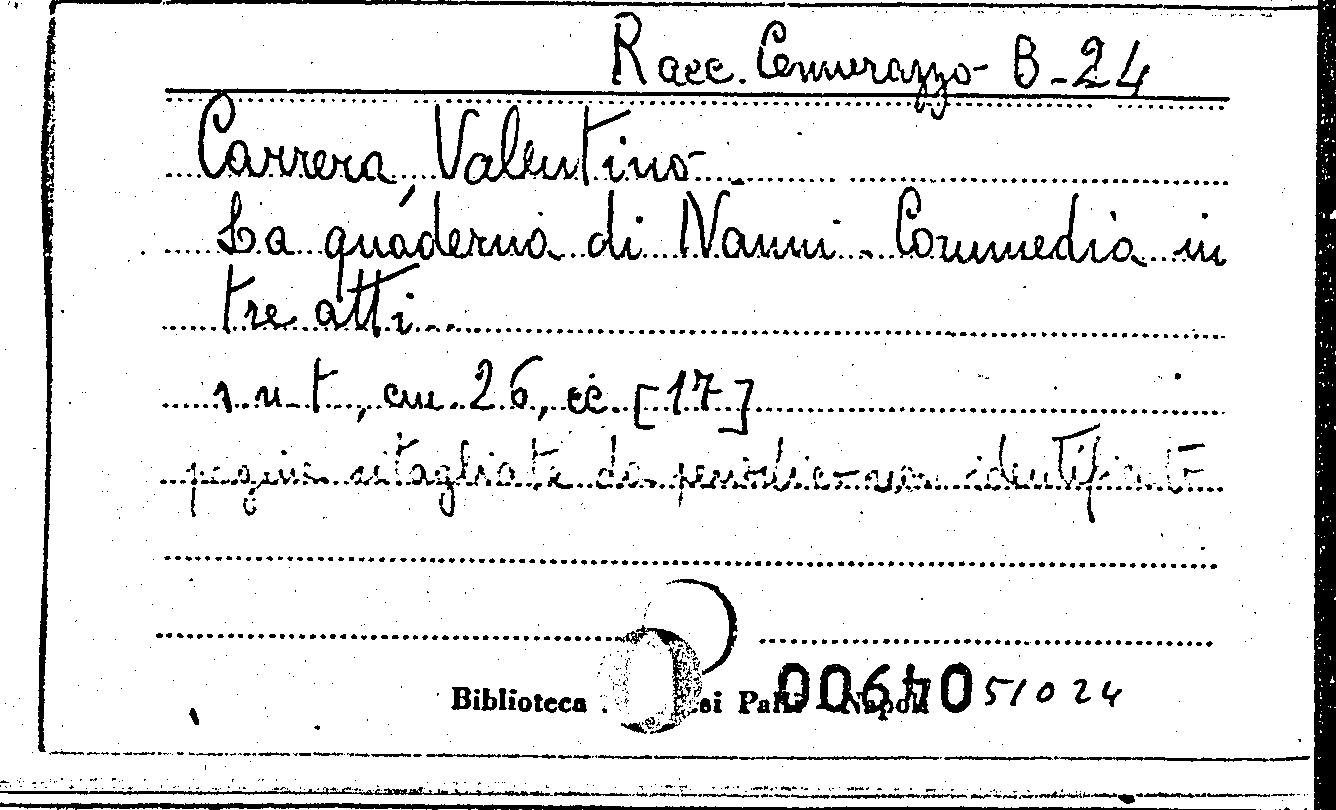 Racc. Cennerazzo - B-24
Carrera, Valentino
La quaderna di Nanni. Commedia in
tre atti.
s.n.t., cm. 26, cc. [17]
pagine ritagliate da periodico non identificato
Biblioteca Napoli 00640 51024